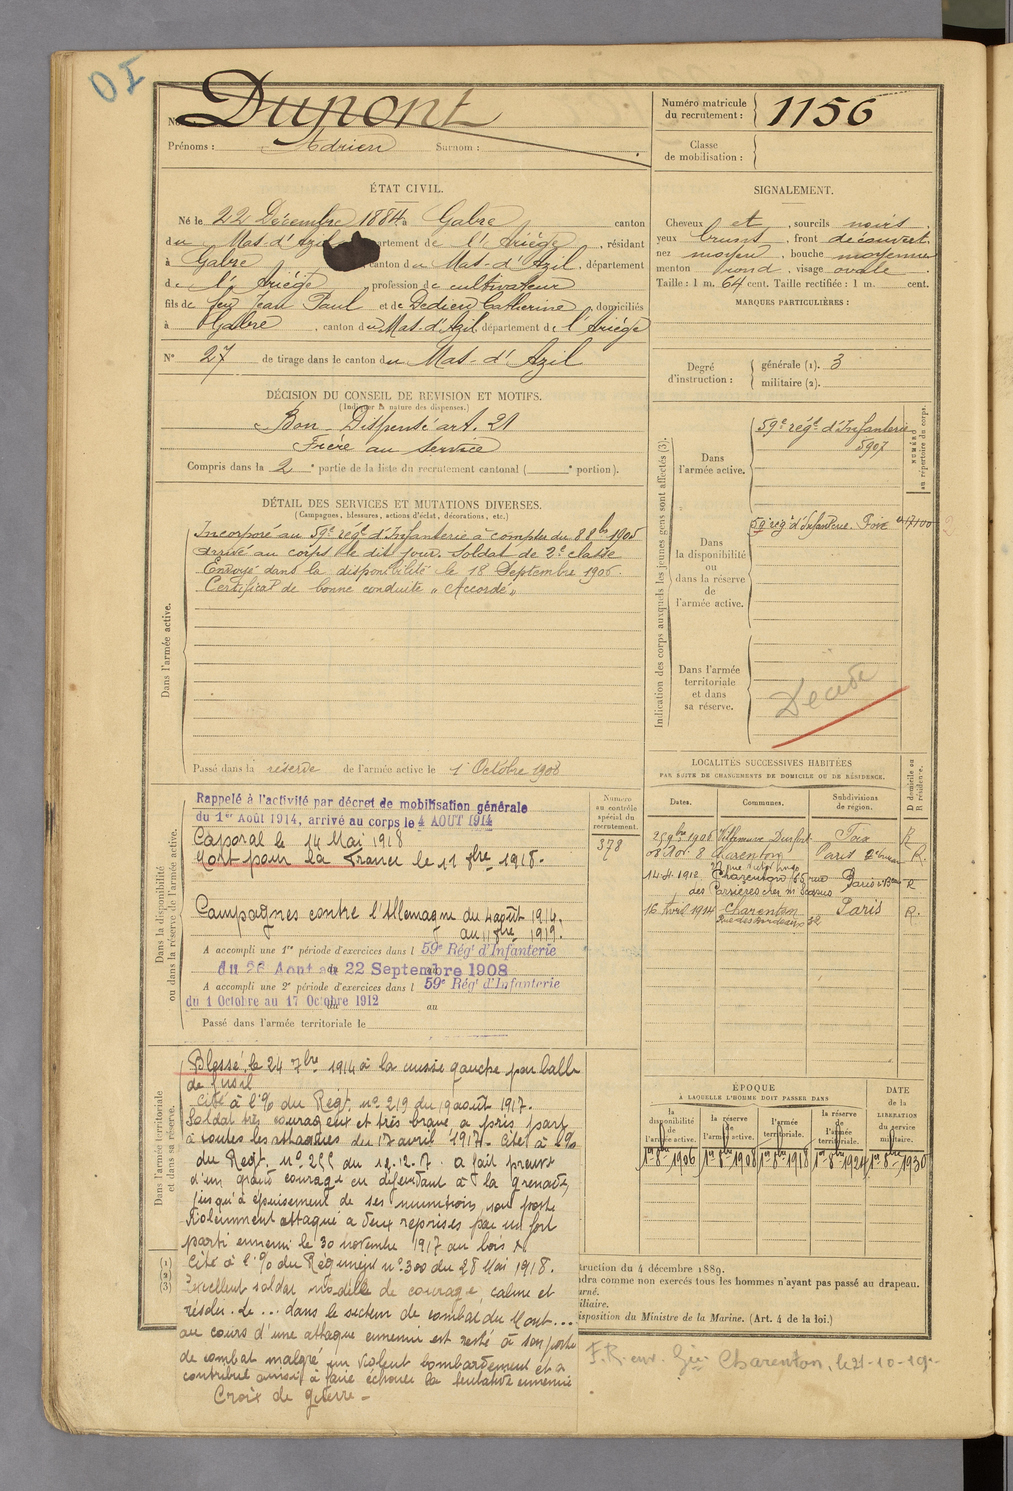 OI
Dupont
Prénoms : Adrien Surnom :
Numéro matricule
du recrutement : 1156
Classe
de mobilisation :
ÉTAT CIVIL.
Né le 22 Décembre 1884 à Gabre canton
du Mas-d'Azil département de l'Ariège, résidant
à Gabre, canton du Mas-d'Azil, département
de l'Ariège profession de cultivateur
fils de feu Jean Paul et de Dedieu Catherine, domiciliés
à Gabre, canton du Mas-d'Azil département de l'Ariège
N° 27 de tirage dans le canton du Mas-d'Azil
SIGNALEMENT.
Cheveux et, sourcils noirs
yeux bruns, front découvert,
nez moyen, bouche moyenne
menton rond, visage ovale.
Taille : 1 m. 64 cent. Taille rectifiée : 1 m. cent.
MARQUES PARTICULIÈRES :
Degré
d'instruction :
générale (1). 3
militaire (2).
DÉCISION DU CONSEIL DE REVISION ET MOTIFS.
(Indiquer la nature des dispenses.)
Bon - Dispensé art. 21
Frère au service
Compris dans la 2e partie de la liste du recrutement cantonal (e portion).
DÉTAIL DES SERVICES ET MUTATIONS DIVERSES.
(Campagnes, blessures, actions d'éclat, décorations, etc.)
Dans l'armée active.
Incorporé au 59e régt d'Infanterie à compter du 8 8bre 1905
arrivé au corps le dit jour. Soldat de 2e classe
Envoyé dans la disponibilité le 18 Septembre 1906.
Certificat de bonne conduite « Accordé »
Passé dans la réserve de l'armée active le 1er Octobre 1908
Indication des corps auxquels les jeunes gens sont affectés (3).
NUMÉRO
au répertoire du corps.
Dans
l'armée active.
59e régt d'Infanterie
5907
Dans
la disponibilité
ou
dans la réserve
de
l'armée active.
59e régt d'Infanterie Foix
Dans l'armée
territoriale
et dans
sa réserve.
Décédé
Dans la disponibilité
ou dans la réserve de l'armée active.
Rappelé à l'activité par décret de mobilisation générale
du 1er Août 1914, arrivé au corps le 4 AOUT 1914
Caporal le 14 Mai 1918
Mort pour la France le 11 1918.
Campagnes contre l'Allemagne du 4 août 1914.
au 11
A accompli une 1re période d'exercices dans l 59e Régt d'Infanterie
du 26 Aout au 22 Septembre 1908
A accompli une 2e période d'exercices dans l 59e Régt d'Infanterie
du 1 Octobre au 17 Octobre 1912 au
Passé dans l'armée territoriale le
Numéro
au contrôle
spécial du
recrutement.
378
LOCALITÉS SUCCESSIVES HABITÉES
PAR SUITE DE CHANGEMENTS DE DOMICILE OU DE RÉSIDENCE.
Dates. Communes. Subdivisions
de région. D domicile ou
R résidence.
25 9bre 1906 Villeneuve Durfort Foix R
8 Charenton Paris R.
14-4-1912 Charenton Paris R
des Carrières
16 Avril 1914 Charenton Paris R.
Rue des Bordeaux 32
Dans l'armée territoriale
et dans sa réserve.
Blessé, le 24 7bre 1914 à la cuisse gauche par balle
de fusil
Cité à l'% du Régt. n° 219 du 19 août 1917.
Soldat très courageux et très brave a pris part
à toutes les attaques du 17 avril 1917. Cité à l'%
du Regt. n° 255 du 12.12.17. a fait preuve
d'un grand courage en défendant à la grenade,
jusqu'à épuisement de ses munitions, son poste
violemment attaqué à deux reprises par un fort
parti ennemi le 30 novembre 1917 au bois
Cité à l'% du Régiment n° 300 du 28 Mai 1918.
Excellent soldat modèle de courage, calme et
résolu. Le ... dans le secteur de combat du Mont...
au cours d'une attaque ennemie est resté à son poste
de combat malgré un violent bombardement et a
contribué ainsi à faire échouer la tentative ennemie
Croix de guerre -
ÉPOQUE
À LAQUELLE L'HOMME DOIT PASSER DANS
la
disponibilité
de
l'armée active. la réserve
de
l'armée active. l'armée
territoriale. la réserve
de
l'armée
territoriale. DATE
de la
LIBÉRATION
du service
militaire.
1er 8bre 1906 1er 8bre 1908 1er 8bre 1918 1er 8bre 1924 1er 8bre 1930
(1)
(2)
(3)
truction du 4 décembre 1889.
ndra comme non exercés tous les hommes n'ayant pas passé au drapeau.
urné.
iliaire.
isposition du Ministre de la Marine. (Art. 4 de la loi.)
F.R. env. Charenton, le 21-10-19.